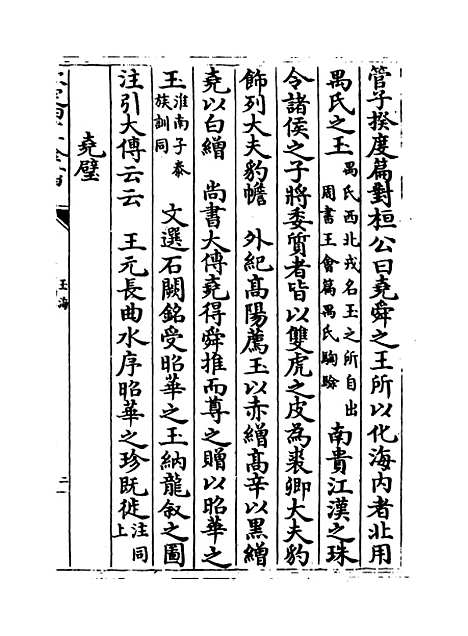 管子揆度篇對桓公曰堯舜之王所以化海内者北用
禺氏之玉禺氏西北戎名玉之所自出周書王會篇禺氏騊駼南貴江漢之珠
令諸侯之子將委質者皆以雙虎之皮為裘卿大夫豹
飾列大夫豹幨　外紀高陽薦玉以赤繒高辛以黑繒
堯以白繒　尚書大傳堯得舜推而尊之贈以昭華之
玉淮南子泰族訓同　文選石闕銘受昭華之玉納龍叙之圖
注引大傳云云　王元長曲水序昭華之珍既徙注同上
堯璧
玉海